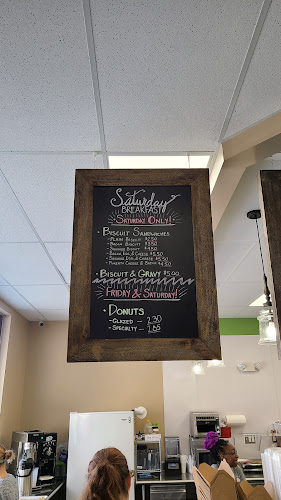 Saturday
BREAKFAST
SATURDAY ONLY!
• BISCUIT SANDWICHES
- PLAIN BISCUIT $2.50
- BACON BISCUIT $3.50
- SAUSAGE BISCUIT $4.50
- BACON, EGG, & CHEESE $5.50
- SAUSAGE, EGG, & CHEESE $5.50
- PIMENTO CHEESE & BACON
• BISCUIT & GRAVY $5.00
FRIDAY & SATURDAY!
• DONUTS
- GLAZED - 2.30
- SPECIALTY -